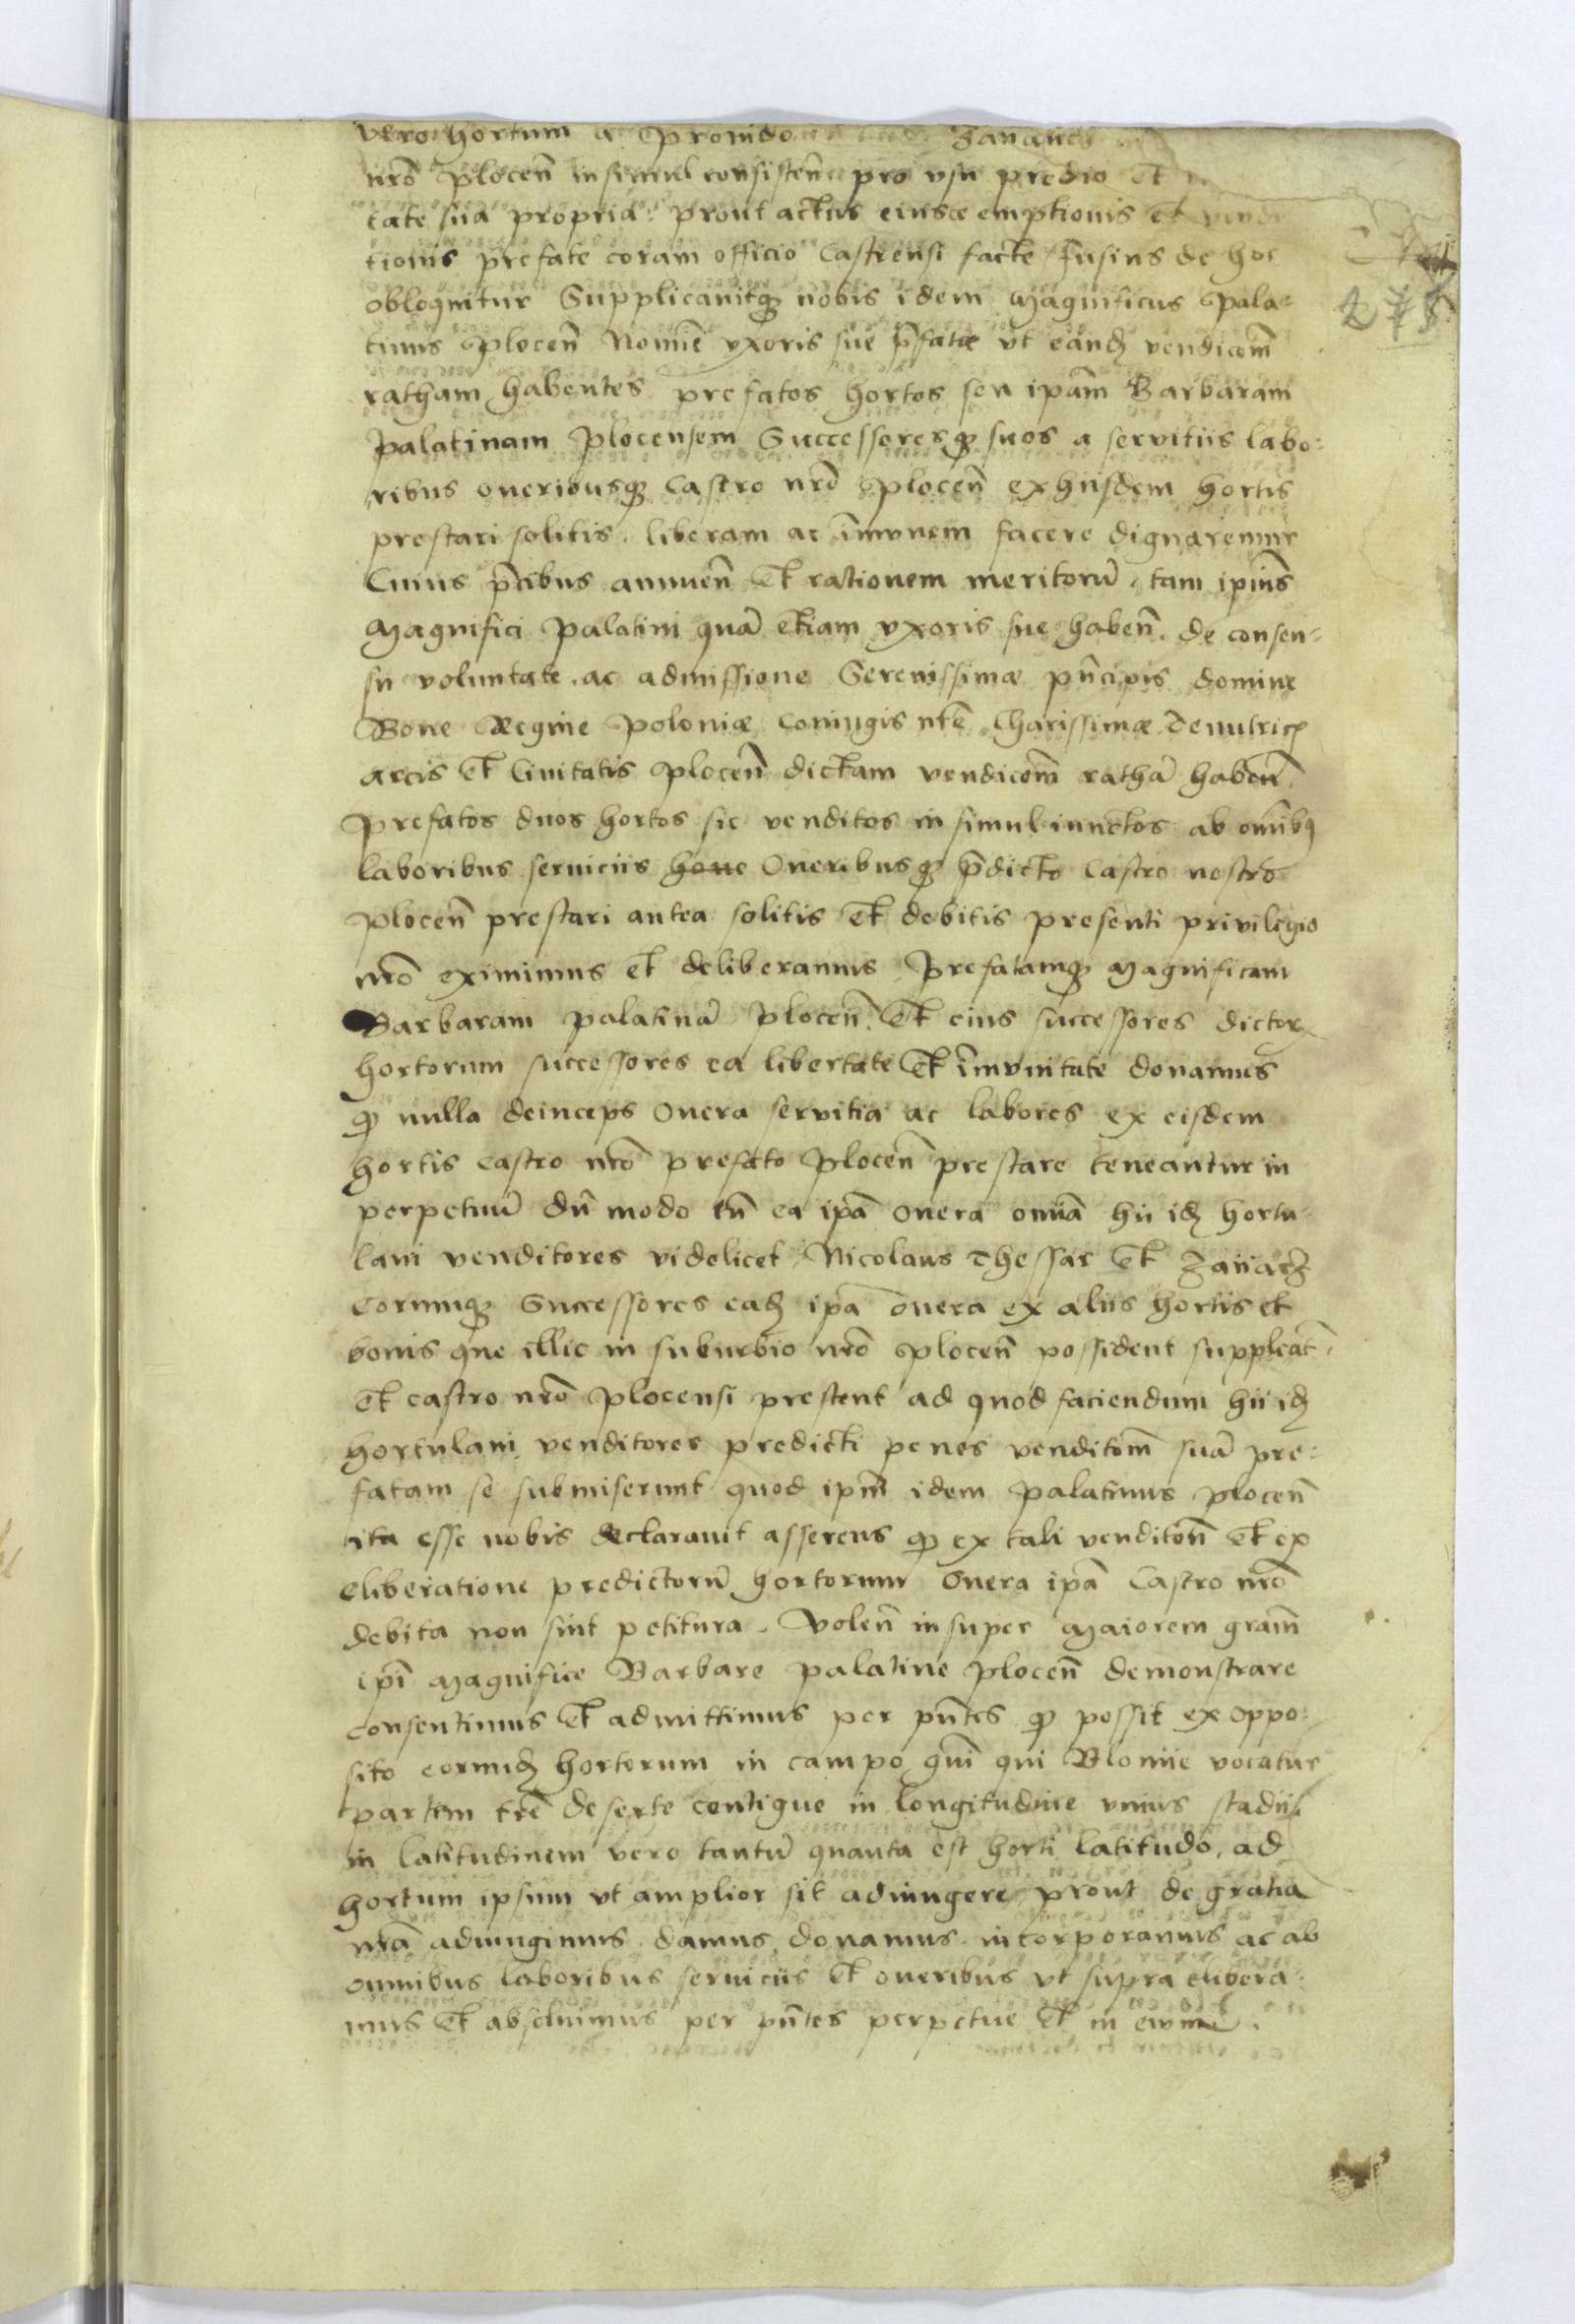 vero hortum a Prouido
nrō plocen̄ insimul consisten̄ pro vsu predio et
tate sua propria: prout actus eiusce emptionis et vendi
tionis prefate coram officio Castrensi facte fusius de hoc
obloquitur Supplicauitqꝫ nobis idem Magnificus Pala-
tinus Plocen̄ Nomiē vxoris sue p̄fatæ vt eandꝫ vendicōm
ratham habentes prefatos hortos seu ipām Barbaram
Palatinam Plocensem Successoresqꝫ suos a servitiis labo:
ribus oneribusqꝫ Castro nrō Plocen̄ ex hiisdem hortis
prestari solitis. liberam ac īmvnem facere dignaremur
Cuius p̄cibus annuen̄ Et rationem meritorū, tam ipius̄
Magnifici Palatini quā etiam vxoris sue haben̄. de consen-
su voluntate, ac admissione Serenissimæ pn̄cipis domine
Bone Regine Poloniæ Coniugis nr̄e Charissimæ. Denutricꝭ
arcis et Ciuitatis Plocen̄ dictam vendicōm rathā haben̄.
Prefatos duos hortos sic venditos in simul iunctos ab omībꝫ
laboribus seruiciis hone Oneribusqꝫ p̄dicto Castro nostro
Plocen̄ prestari antea solitis et debitis presenti privilegio
nrō eximimus et deliberamus Prefatamqꝫ Magnificam
Barbaram palatinā Plocen̄. Et eius successores dictorꝝ
hortorum successores ea libertate et īmvnitate donamus
qꝫ nulla deinceps Onera servitia ac labores ex eisdem
hortis Castro nrō prefato Plocen̄ prestare teneantur in
perpetuū dū modo tn̄ ea ipā onera omīa hii idꝫ hortu-
lani venditores videlicet Nicolaus Thessar et
Eorumqꝫ Successores eadꝫ ipa onera ex aliis hortis et
bonis que illic in suburbio nrō Plocen̄ possident suppleāt
Et castro nrō Plocensi prestent ad quod faciendum hii idꝫ
hortulani venditores predicti penes venditiōm suā pre:
fatam se submiserunt quod ipm̄ idem Palatinus Plocen̄
ita esse nobis declarauit asserens qꝫ ex tali venditiōn et ex
eliberatione predictorū hortorum Onera ipā Castro nrō
debita non sint petitura. Volen̄ insuper Maiorem grām
ipī Magnifice Barbare palatine Plocen̄ demonstrare
consentimus Et admittimus per pn̄tes qꝫ possit ex oppo:
sito eorundꝫ hortorum in campo qui Blonie vocatur
partem trē deserte contigue in longitudine vnius stadii
in latitudinem vero tantū quanta est horti latitudo, ad
hortum ipsum vt amplior sit adiungere prout de gratia
nrā adiungimus. damus, donamus. incorporamus ac ab
omnibus laboribus seruiciis et oneribus vt supra elibera:
mus et absoluimus per pn̄tes perpetue et in euum.